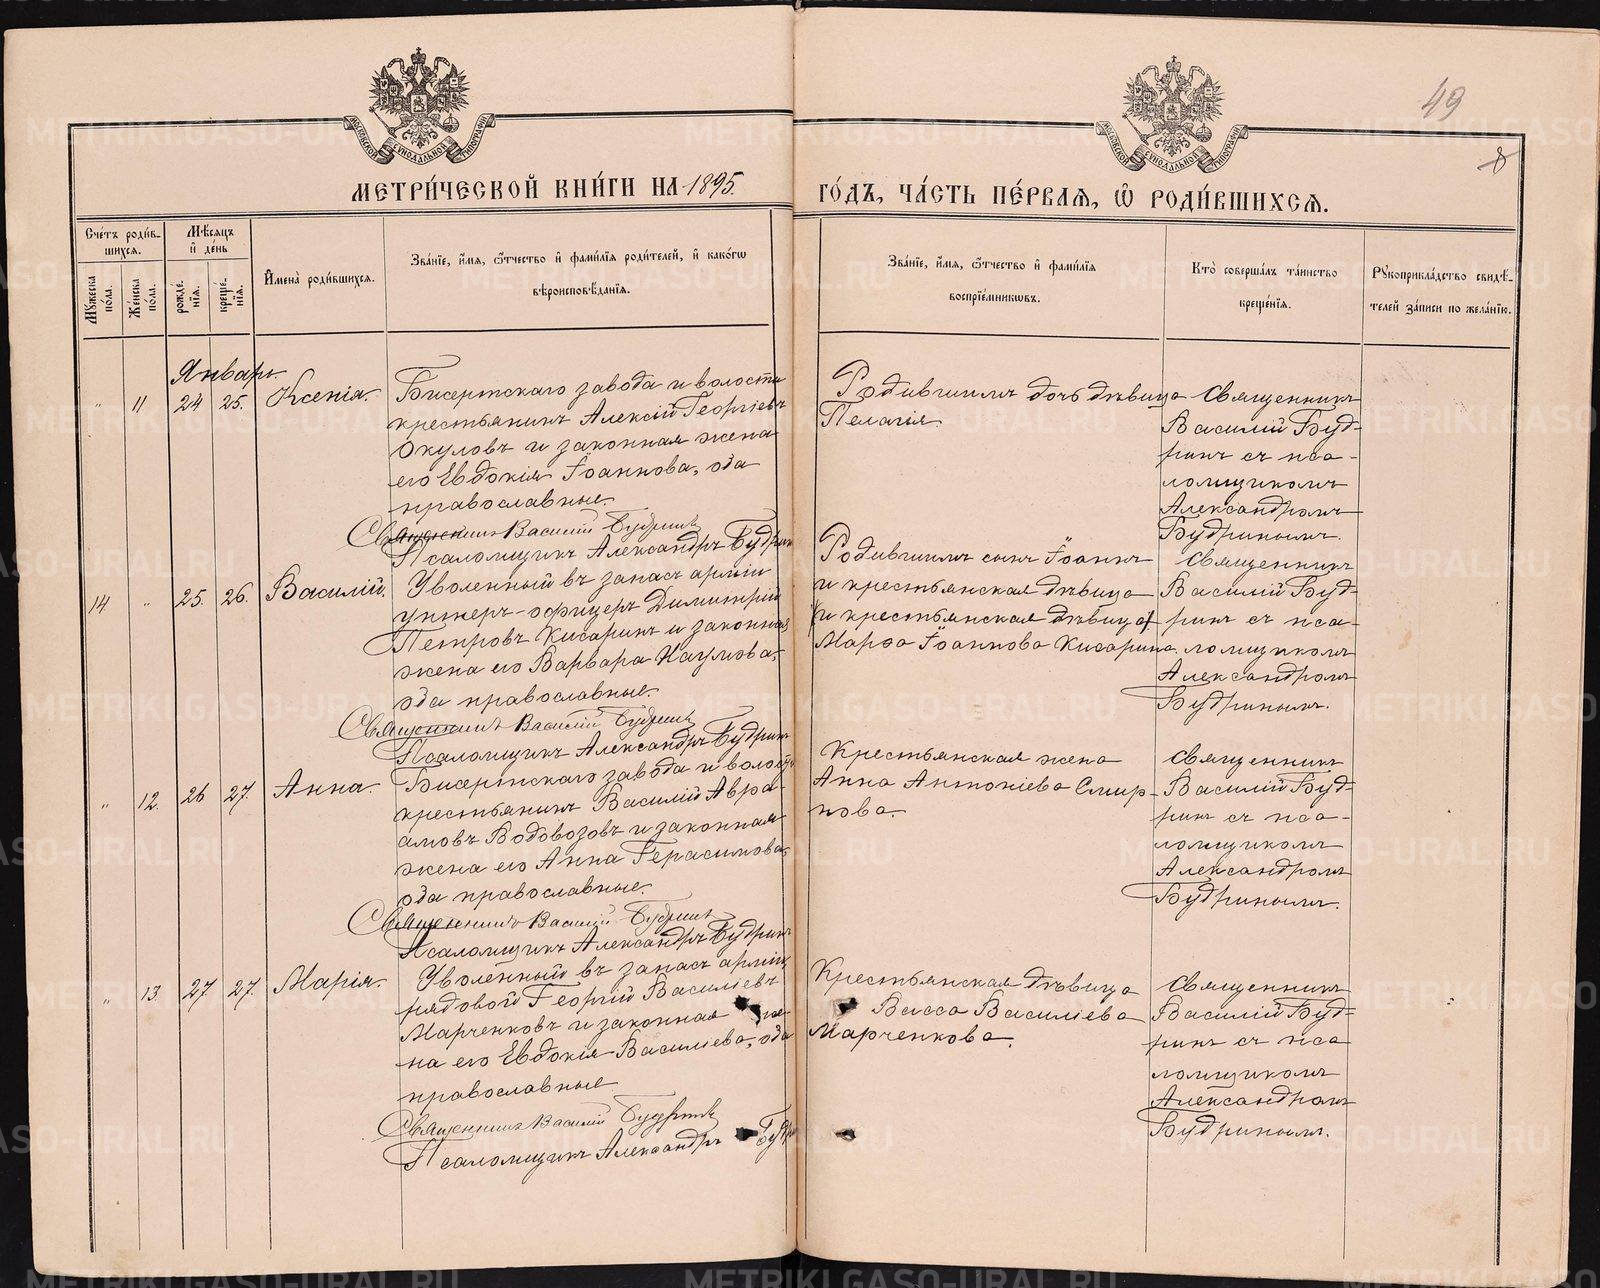 49
8
МОСКОВСКОЙ СѴНОДАЛЬНОЙ ТИПОГРАФІИ
МОСКОВСКОЙ СѴНОДАЛЬНОЙ ТИПОГРАФІИ
МЕТРИ́ЧЕСКОЙ КНИ́ГИ НА 1895.
ГО́ДЪ, ЧА́СТЬ ПЕ́РВАѦ, Ѿ РОДИ́ВШИХСѦ.
Сче́тъ роди́в-
шихсѧ.
Му́жеска
пола.
Же́нска
пола.
Мѣ́сѧцъ
и҆ де́нь
рожде́-
нїѧ.
креще́-
нїѧ.
И҆мена̀ роди́вшихсѧ.
Зва́нїе, и҆́мѧ, ѻ҆́тчество и҆ фами́лїѧ роди́телей, и҆ како́гѡ
вѣроисповѣ́данїѧ.
Зва́нїе, и҆́мѧ, ѻ҆́тчество и҆ фами́лїѧ
воспрїе́мникѡвъ.
Кто̀ соверша́лъ та́инство
креще́нїѧ.
Рꙋкоприкла́дство свидѣ́-
телей за́писи по жела́нїю.
Январь.
" 11 24 25. Ксенія.
Бисертскаго завода и волости
крестьянинъ Алексій Георгіевъ
Окуловъ и законная жена
его Евдокія Іоаннова, оба
православные.
Священникъ Василій Будринъ
Псаломщикъ Александръ Будрин
Родившимъ дочь дѣвица
Пелагія.
Священникъ
Василій Буд-
ринъ съ пса-
ломщикомъ
Александромъ
Будринымъ.
14 " 25. 26. Василій.
Уволенный въ запасъ арміи
унтеръ-офицеръ Димитрій
Петровъ Кисаринъ и законная
жена его Варвара Наумова,
оба православные.
Священникъ Василій Будринъ
Псаломщикъ Александръ Будринъ
Родившимъ сынъ Іоаннъ
и крестьянская дѣвица
(и крестьянская дѣвица)
Марѳа Іоаннова Кисарина.
Священникъ
Василій Буд-
ринъ съ пса-
ломщикомъ
Александромъ
Будринымъ.
" 12. 26 27. Анна.
Бисертскаго завода и волости
крестьянинъ Василій Авра-
амовъ Водовозовъ и законная
жена его Анна Герасимова,
оба православные.
Священникъ Василій Будринъ
Псаломщикъ Александръ Будрин
Крестьянская жена
Анна Антоніева Смир-
нова.
Священникъ
Василій Буд-
ринъ съ пса-
ломщикомъ
Александромъ
Будринымъ.
" 13. 27 27. Марія.
Уволенный въ запасъ арміи
рядовой Георгій Василіевъ
Марченковъ и законная же-
на его Евдокія Василіева, оба
православные
Священникъ Василій Будринъ
Псаломщикъ Александръ Будр
Крестьянская дѣвица
Васса Василіева
Марченкова.
Священникъ
Василій Буд-
ринъ съ пса
ломщикомъ
Александромъ
Будринымъ.